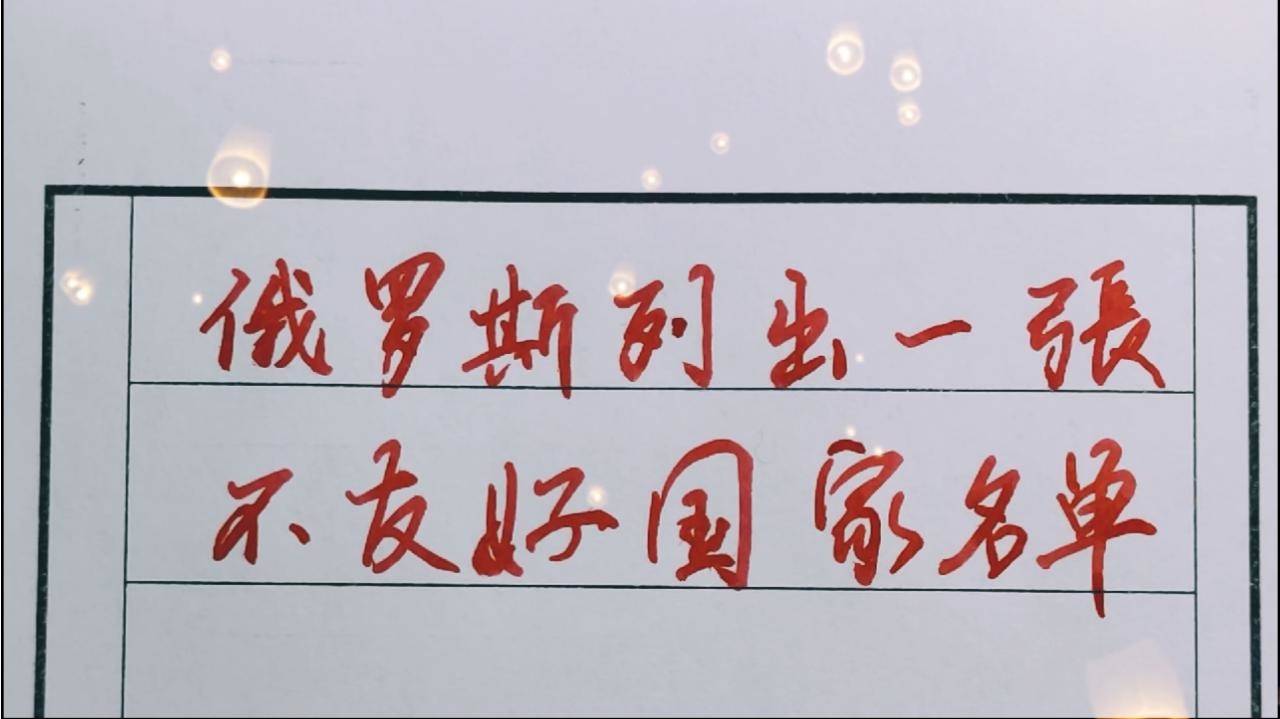 俄罗斯列出一張
不友好国家名单